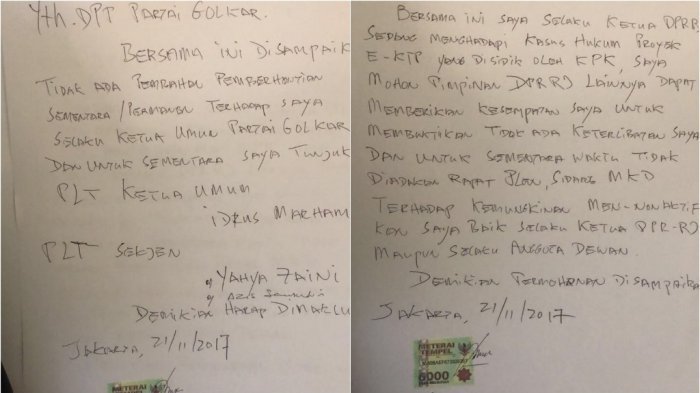 Yth. DPT PARTAI GOLKAR.
BERSAMA INI DISAMPAIK
TIDAK ADA PEMBAHASAN PEMBERHENTIAN
SEMENTARA/PERMANEN TERHADAP SAYA
SELAKU KETUA UMUM PARTAI GOLKAR
DAN UNTUK SEMENTARA SAYA TUNJUK
PLT KETUA UMUM
IDRUS MARHAM
PLT SEKJEN
YAHYA ZAINI
DEMIKIAN HARAP DIMAKLU
JAKARTA, 21/11 2017
METERAI
TEMPEL
BERSAMA INI SAYA SELAKU KETUA DPRR
SEDANG MENGHADAPI KASUS HUKUM PROYEK
E-KTP YANG DISIDIK OLEH KPK, SAYA
MOHON PIMPINAN DPR RI LAINNYA DAPAT
MEMBERIKAN KESEMPATAN SAYA UNTUK
MEMBUKTIKAN TIDAK ADA KETERLIBATAN SAYA
DAN UNTUK SEMENTARA WAKTU TIDAK
DIADAKAN RAPAT PLENO, SIDANG MKD
TERHADAP KEMUNGKINAN MEN-NONAKTIF
KAN SAYA BAIK SELAKU KETUA DPR-RI
MAUPUN SELAKU ANGGOTA DEWAN.
DEMIKIAN PERMOHONAN DISAMPAIKA
JAKARTA, 21/11 2017
METERAI
TEMPEL
6000